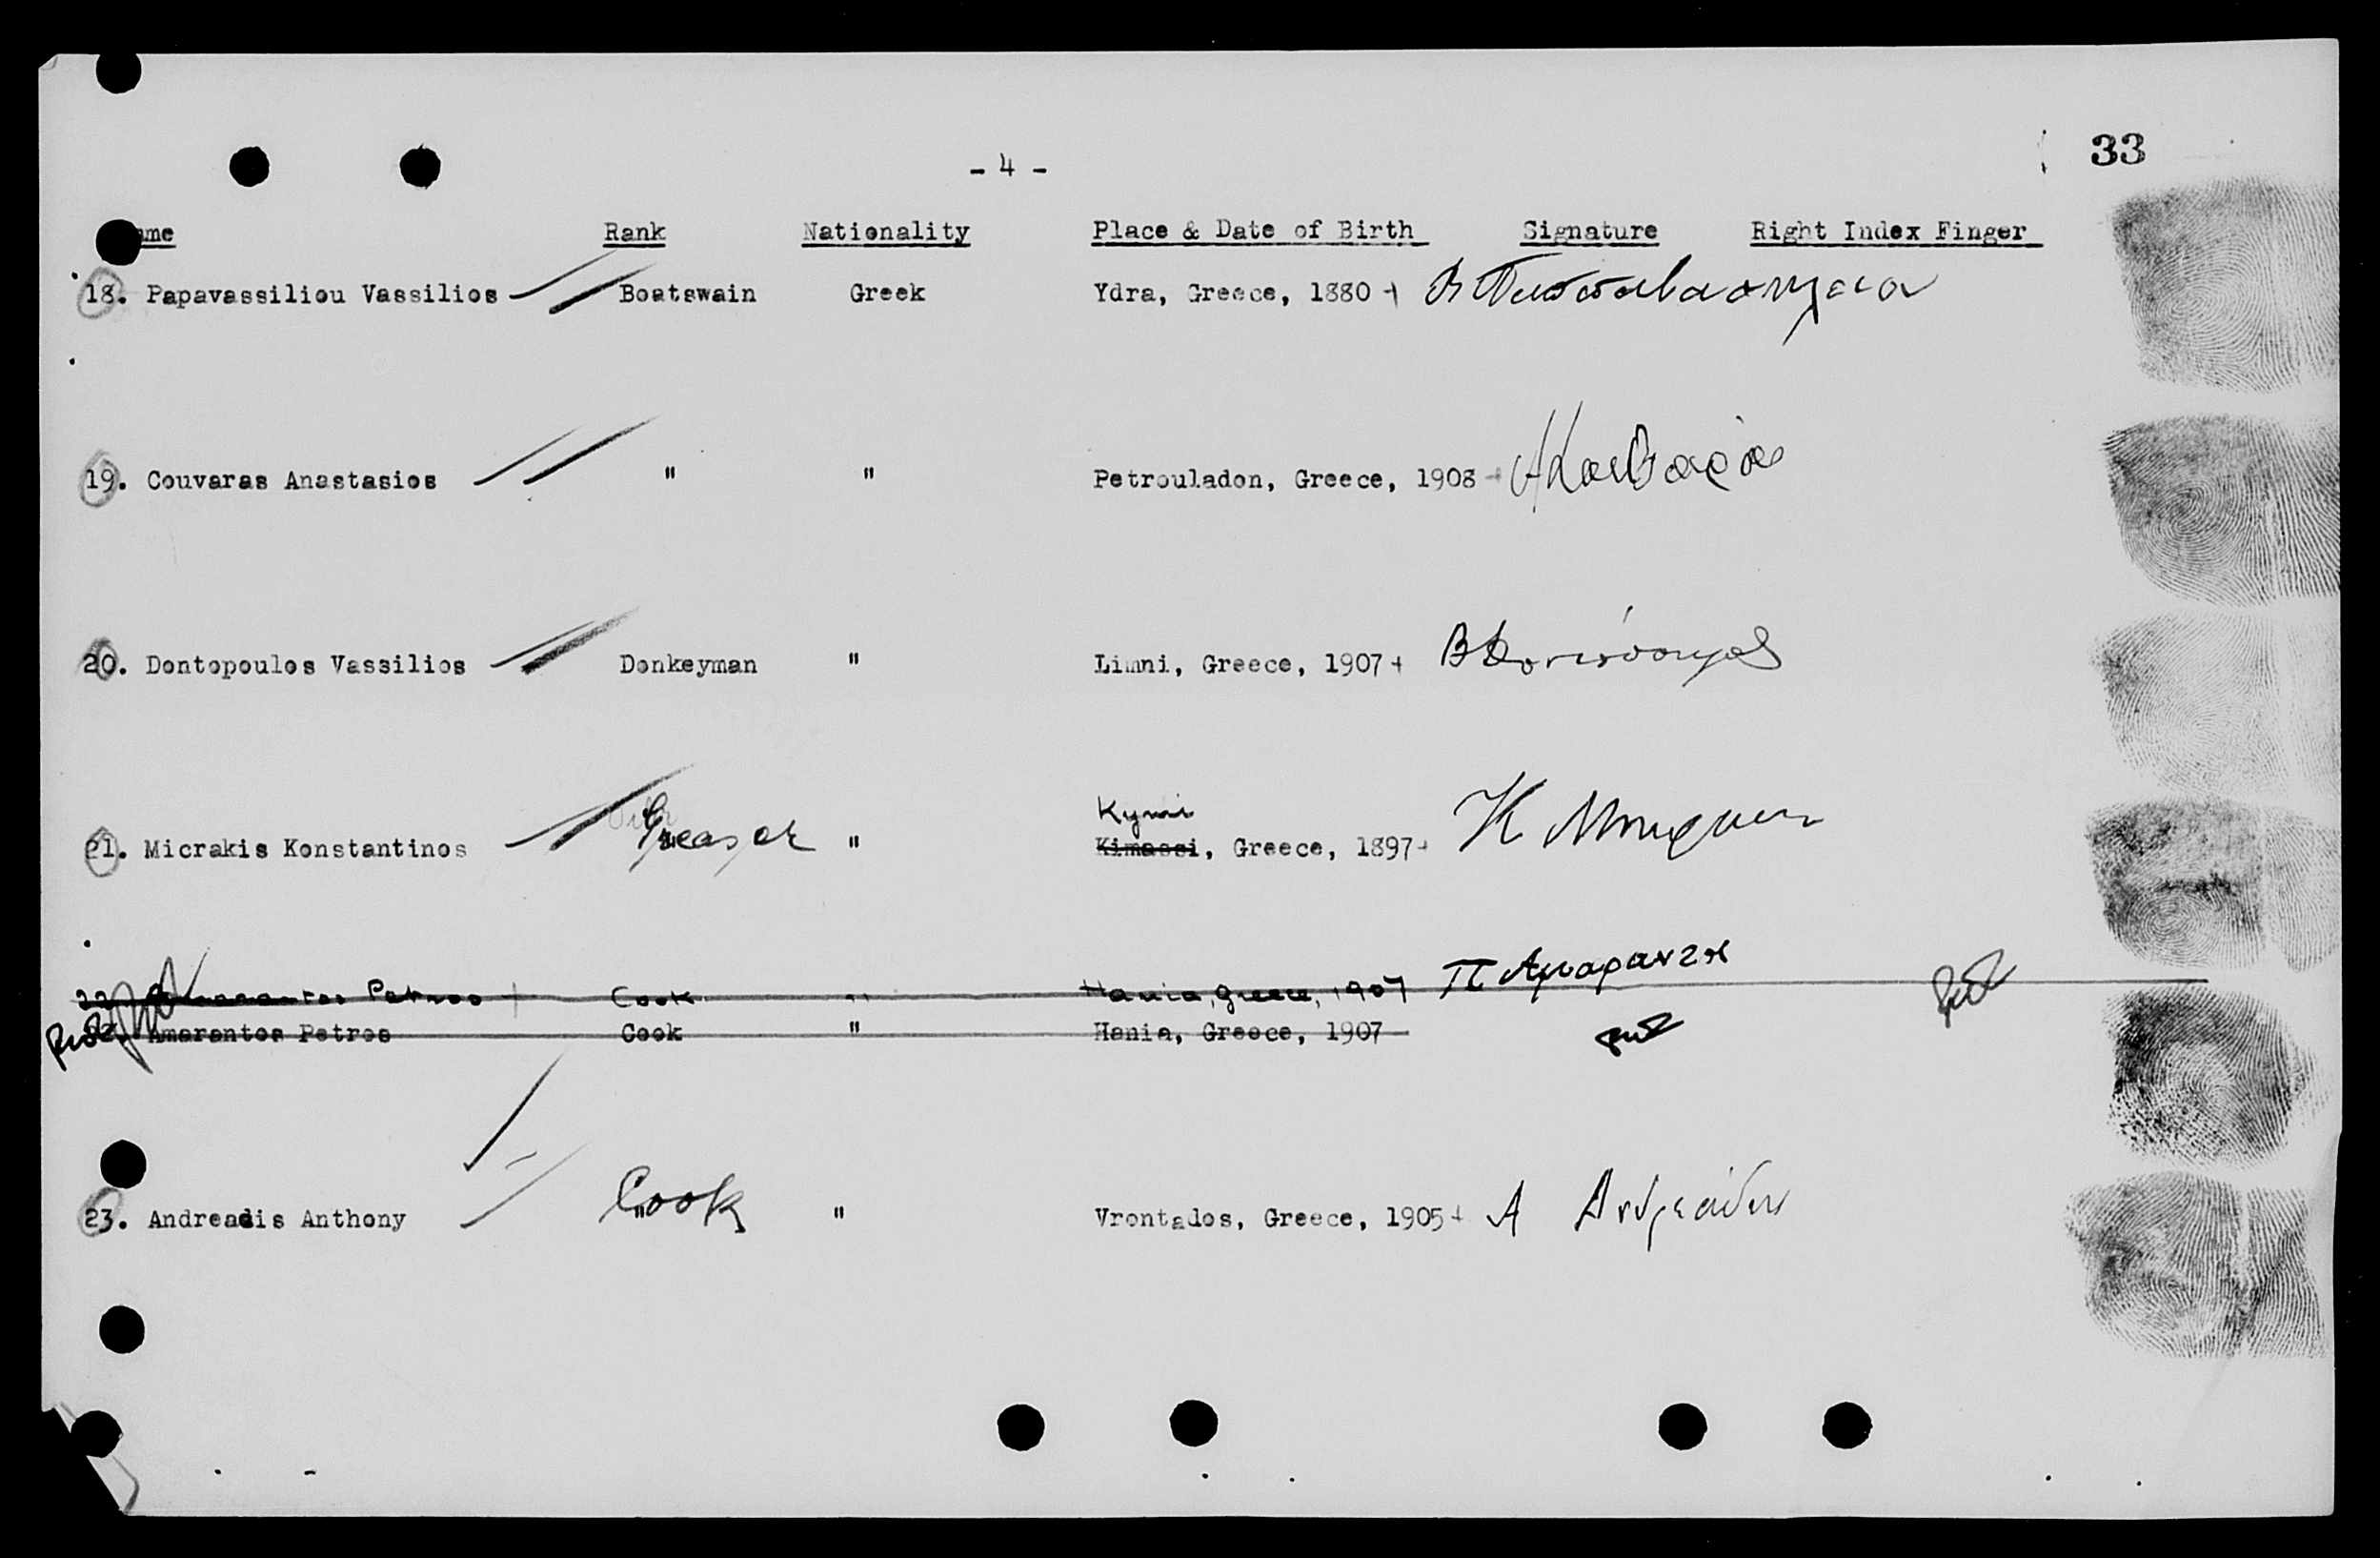 - 4 -
33
me Rank Nationality Place & Date of Birth Signature Right Index Finger
18. Papavassiliou Vassilios Boatswain Greek Ydra, Greece, 1880
19. Couvaras Anastasios " " Petrouladon, Greece, 1908
20. Dontopoulos Vassilios Donkeyman " Limni, Greece, 1907
Kymi
21. Micrakis Konstantinos Greaser " Kimassi, Greece, 1897
22 Amarantos Petros Cook " Hania, Greece, 1907 Π Αμαραντος
Amarantos Petros Cook " Hania, Greece, 1907
23. Andreadis Anthony Cook " Vrontados, Greece, 1905 Α Ανδρεάδης